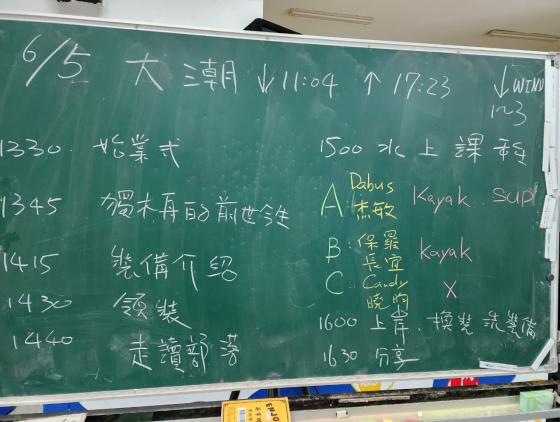 6/5 大潮 ↓11:04 ↑17:23 ↓WIND
1~3
1330 始業式
1345 獨木舟的前世今生
1415 裝備介紹
1430 領裝
1440 走讀部落
1500 水上課程
A Dabus Kayak sup
杰敏
B: 保羅 Kayak
長宜
C: Candy X
曉
1600 上岸、換裝 洗裝備
1630 分享